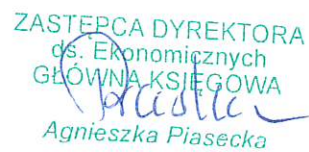 ZASTĘPCA DYREKTORA
ds. Ekonomicznych
GŁÓWNA KSIĘGOWA
Agnieszka Piasecka